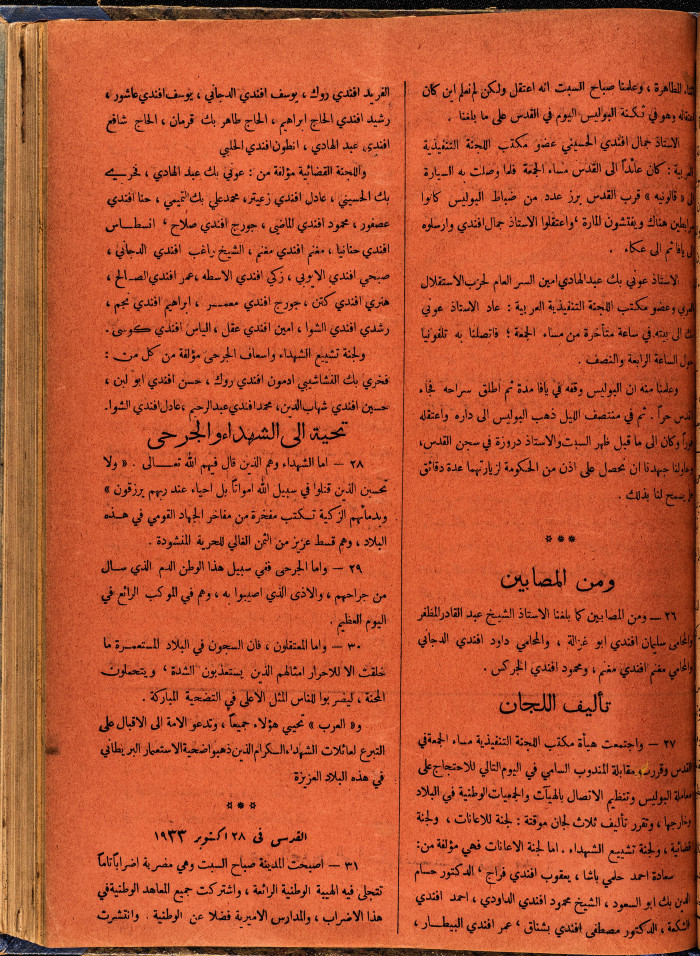 للظاهرة ، وعلمنا صباح السبت انه اعتقل ولكن لم نعلم اين كان
معتقله وهو في ثكنة البوليس اليوم في القدس على ما بلغنا .
الاستاذ جمال افندي الحسيني عضو مكتب اللجنة التنفيذية
العربية : كان عائداً الى القدس مساء الجمعة فلما وصلت به السيارة
الى « قالونيه » قرب القدس برز عدد من ضباط البوليس كانوا
مرابطين هناك ويفتشون المارة ، واعتقلوا الاستاذ جمال افندي وارسلوه
الى يافا ثم الى عكا .
الاستاذ عوني بك عبد الهادي امين السر العام لحزب الاستقلال
العربي وعضو مكتب اللجنة التنفيذية العربية : عاد الاستاذ عوني
بك الى بيته في ساعة متأخرة من مساء الجمعة ؛ فاتصلنا به تلفونيا
حول الساعة الرابعة والنصف .
وعلمنا منه ان البوليس وقفه في يافا مدة ثم اطلق سراحه فجاء
القدس حراً . ثم في منتصف الليل ذهب البوليس الى داره واعتقله
وكان الى ما قبل ظهر السبت والاستاذ دروزة في سجن القدس ،
وحاولنا جهدنا ان نحصل على اذن من الحكومة لزيارتهما عدة دقائق
فلم يسمح لنا بذلك .
***
ومن المصابين
٢٦ – ومن المصابين كما بلغنا الاستاذ الشيخ عبد القادر المظفر
والمحامي سليمان افندي ابو غزالة ، والمحامي داود افندي الدجاني
والمحامي مغنم افندي مغنم ، ومحمود افندي الجركس .
تأليف اللجان
٢٧ – واجتمعت هيأة مكتب اللجنة التنفيذية مساء الجمعة في
القدس وقررت مقابلة المندوب السامي في اليوم التالي للاحتجاج على
معاملة البوليس وتنظيم الاتصال بالهيآت والجمعيات الوطنية في البلاد
وخارجها ، وتقرر تأليف ثلاث لجان موقتة : لجنة للاعانات ، ولجنة
قضائية ، ولجنة تشييع الشهداء . اما لجنة الاعانات فهي مؤلفة من :
سعادة احمد حلمي باشا ، يعقوب افندي فراج ، الدكتور حسام
الدين بك ابو السعود ، الشيخ محمود افندي الداودي ، احمد افندي
الشكعة ، الدكتور مصطفى افندي بشناق ، عمر افندي البيطار ،
الفريد افندي روك ، يوسف افندي الدجاني ، يوسف افندي عاشور ،
رشيد افندي الحاج ابراهيم ، الحاج طاهر بك قرمان ، الحاج شافع
افندي عبد الهادي ، انطون افندي الحلبي
واللجنة القضائية مؤلفة من : عوني بك عبد الهادي ، فخري
بك الحسيني ، عادل افندي زعيتر ، محمد علي بك التميمي ، حنا افندي
عصفور ، محمود افندي الماضي ، جورج افندي صلاح ، انسطاس
افندي حنانيا ، مغنم افندي مغنم ، الشيخ راغب افندي الدجاني ،
صبحي افندي الايوبي ، زكي افندي الاسطه ، عمر افندي الصالح ،
هنري افندي كتن ، جورج افندي معمر ، ابراهيم افندي نجم ،
رشدي افندي الشوا ، امين افندي عقل ، الياس افندي كوسى .
ولجنة تشييع الشهداء واسعاف الجرحى مؤلفة من كل من :
فخري بك النشاشيبي ادمون افندي روك ، حسن افندي ابو لبن ،
حسين افندي شهاب الدين ، محمد افندي عبد الرحيم ، عادل افندي الشوا .
تحية الى الشهداء والجرحى
٢٨ – اما الشهداء وهم الذين قال فيهم الله تعالى . « ولا
تحسبن الذين قتلوا في سبيل الله امواتاً بل احياء عند ربهم يرزقون »
وبدمائهم الزكية تكتب مفخرة من مفاخر الجهاد القومي في هذه
البلاد ، وهم قسط عزيز من الثمن الغالي للحرية المنشودة .
٢٩ – واما الجرحى ففي سبيل هذا الوطن الدم الذي سال
من جراحهم ، والاذى الذي اصيبوا به ، وهم في الموكب الرائع في
اليوم العظيم .
٣٠ – واما المعتقلون ، فان السجون في البلاد المستعمرة ما
خلقت الا للاحرار امثالهم الذين يستعذبون الشدة ، ويتحملون
المحنة ، ليضربوا للناس المثل الاعلى في التضحية المباركة .
و« العرب » تحيي هؤلاء جميعاً ، وتدعو الامة الى الاقبال على
التبرع لعائلات الشهداء الكرام الذين ذهبوا ضحية الاستعمار البريطاني
في هذه البلاد العزيزة
***
القدس في ٢٨ اكتوبر ١٩٣٣
٣١ – اصبحت المدينة صباح السبت وهي مضربة اضراباً تاماً
تتجلى فيه الهيبة الوطنية الرائعة ، واشتركت جميع المعاهد الوطنية في
هذا الاضراب ، والمدارس الاميرية فضلا عن الوطنية . وانتشرت